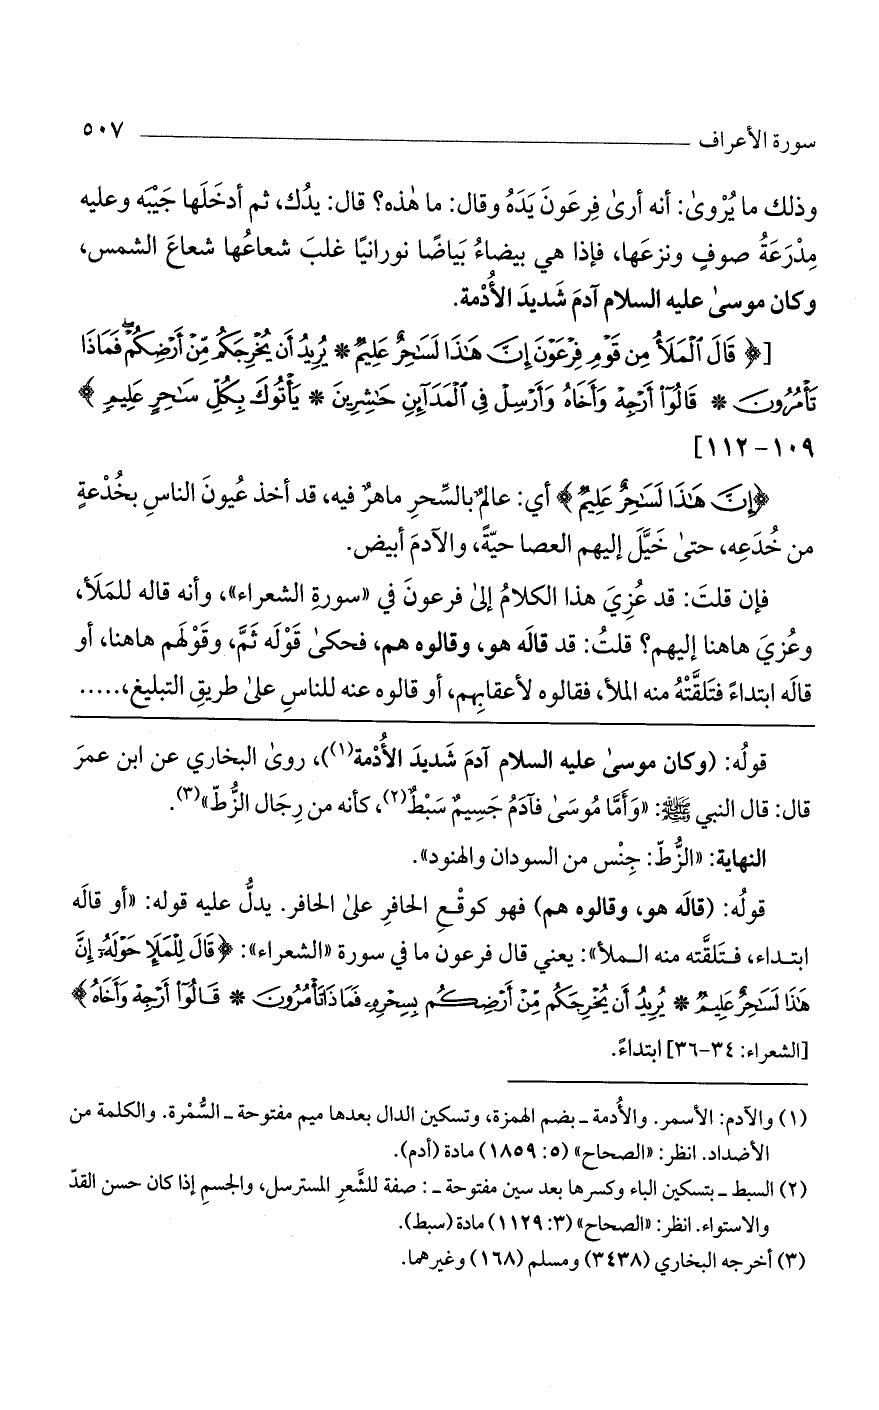 سورة الأعراف ٥٠٧
وذلك ما يُرْوىٰ: أنه أرىٰ فِرعَونَ يَدَهُ وقال: ما هٰذه؟ قال: يدُك، ثم أدخَلَها جَيْبَه وعليه
مِدْرَعَةُ صوفٍ ونزعَها، فإذا هي بيضاءُ بَياضًا نورانيًا غلبَ شعاعُها شعاعَ الشمس،
وكان موسىٰ عليه السلام آدمَ شَديدَ الأُدْمة.
[﴿ قَالَ ٱلْمَلَأُ مِن قَوْمِ فِرْعَوْنَ إِنَّ هَٰذَا لَسَٰحِرٌ عَلِيمٌ * يُرِيدُ أَن يُخْرِجَكُم مِّنْ أَرْضِكُمْ ۖ فَمَاذَا
تَأْمُرُونَ * قَالُوٓا۟ أَرْجِهْ وَأَخَاهُ وَأَرْسِلْ فِى ٱلْمَدَآئِنِ حَٰشِرِينَ * يَأْتُوكَ بِكُلِّ سَٰحِرٍ عَلِيمٍ ﴾
١٠٩-١١٢]
﴿إِنَّ هَٰذَا لَسَٰحِرٌ عَلِيمٌ ﴾ أي: عالمٌ بالسِّحرِ ماهرٌ فيه، قد أخذ عُيونَ الناسِ بخُدْعةٍ
من خُدَعِه، حتىٰ خَيَّلَ إليهم العصا حيّةً، والآدمَ أبيض.
فإن قلتَ: قد عُزِيَ هذا الكلامُ إلىٰ فرعونَ في «سورةِ الشعراء»، وأنه قاله للمَلَأ،
وعُزيَ هاهنا إليهم؟ قلتُ: قد قالَه هو، وقالوه هم، فحكىٰ قَوْلَه ثَمَّ، وقَوْلَهم هاهنا، أو
قالَه ابتداءً فتَلقَّتْهُ منه الملأ، فقالوه لأعقابِهم، أو قالوه عنه للناسِ علىٰ طريقِ التبليغ،.....
قولُه: (وكان موسىٰ عليه السلام آدمَ شَديدَ الأُدْمة(١))، روىٰ البخاري عن ابن عمرَ
قال: قال النبي ﷺ: «وَأَمَّا مُوسَىٰ فآدَمُ جَسِيمٌ سَبْطٌ(٢)، كأنه من رِجَال الزُّطّ»(٣).
النهاية: «الزُّطّ: جِنْس من السودان والهنود».
قولُه: (قالَه هو، وقالوه هم) فهو كوقْعِ الحافرِ علىٰ الحافر. يدلُّ عليه قوله: «أو قالَه
ابتـداء، فـتَلقَّته منه الـملأ»: يعني قال فرعون ما في سورة «الشعراء»: ﴿قَالَ لِلْمَلَإِ حَوْلَهُۥٓ إِنَّ
هَٰذَا لَسَٰحِرٌ عَلِيمٌ * يُرِيدُ أَن يُخْرِجَكُم مِّنْ أَرْضِكُم بِسِحْرِهِۦ فَمَاذَا تَأْمُرُونَ * قَـالُوٓا۟ أَرْجِهْ وَأَخَاهُ ﴾
[الشعراء: ٣٤-٣٦] ابتداءً.
(١) والآدم: الأسمر. والأُدمة ـ بضم الهمزة، وتسكين الدال بعدها ميم مفتوحة ـ السُّمْرة. والكلمة من
الأضداد. انظر: «الصحاح» (٥: ١٨٥٩) مادة (أدم).
(٢) السبط ـ بتسكين الباء وكسرها بعد سين مفتوحة ـ : صفة للشَّعرِ المسترسل، والجسمِ إذا كان حسن القدّ
والاستواء. انظر: «الصحاح» (٣: ١١٢٩) مادة (سبط).
(٣) أخرجه البخاري (٣٤٣٨) ومسلم (١٦٨) وغيرهما.